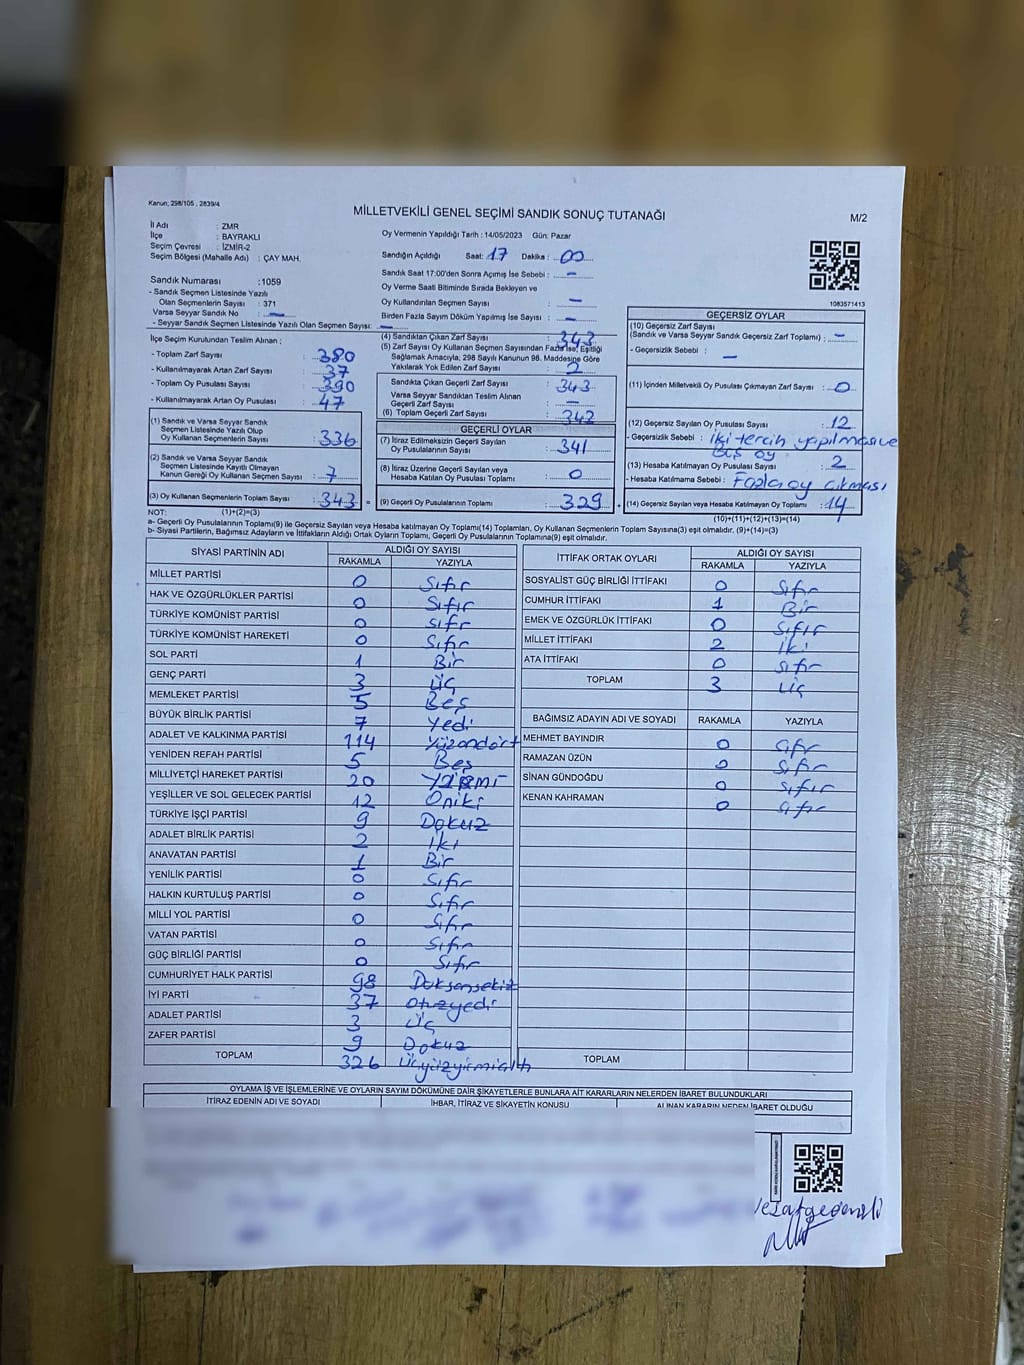 Kanun; 298/105 , 2839/4
MİLLETVEKİLİ GENEL SEÇİMİ SANDIK SONUÇ TUTANAĞI
M/2
İl Adı : ZMR
İlçe : BAYRAKLI
Seçim Çevresi : İZMİR-2
Seçim Bölgesi (Mahalle Adı) : ÇAY MAH.
Oy Vermenin Yapıldığı Tarih : 14/05/2023 Gün: Pazar
Sandığın Açıldığı Saat: 17 Dakika : 00
Sandık Saat 17:00'den Sonra Açımış İse Sebebi : –
Oy Verme Saati Bitiminde Sırada Bekleyen ve
Oy Kullandırılan Seçmen Sayısı : –
Birden Fazla Sayım Döküm Yapılmış İse Sayısı : –
1083571413
Sandık Numarası :1059
- Sandık Seçmen Listesinde Yazılı
Olan Seçmenlerin Sayısı : 371
Varsa Seyyar Sandık No : –
- Seyyar Sandık Seçmen Listesinde Yazılı Olan Seçmen Sayısı: –
İlçe Seçim Kurulundan Teslim Alınan ;
- Toplam Zarf Sayısı : 380
- Kullanılmayarak Artan Zarf Sayısı : 37
- Toplam Oy Pusulası Sayısı : 390
- Kullanılmayarak Artan Oy Pusulası : 47
(1) Sandık ve Varsa Seyyar Sandık
Seçmen Listesinde Yazılı Olup
Oy Kullanan Seçmenlerin Sayısı : 336
(2) Sandık ve Varsa Seyyar Sandık
Seçmen Listesinde Kayıtlı Olmayan
Kanun Gereği Oy Kullanan Seçmen Sayısı : 7
(3) Oy Kullanan Seçmenlerin Toplam Sayısı : 343 =
(4) Sandıktan Çıkan Zarf Sayısı : 343
(5) Zarf Sayısı Oy Kullanan Seçmen Sayısından Fazla İse, Eşitliği
Sağlamak Amacıyla, 298 Sayılı Kanunun 98. Maddesine Göre
Yakılarak Yok Edilen Zarf Sayısı : 2
Sandıkta Çıkan Geçerli Zarf Sayısı : 343
Varsa Seyyar Sandıktan Teslim Alınan
Geçerli Zarf Sayısı : –
(6) Toplam Geçerli Zarf Sayısı : 342
GEÇERLİ OYLAR
(7) İtiraz Edilmeksizin Geçerli Sayılan
Oy Pusulalarının Sayısı : 341
(8) İtiraz Üzerine Geçerli Sayılan veya
Hesaba Katılan Oy Pusulası Toplamı : 0
(9) Geçerli Oy Pusulalarının Toplamı : 329 +
GEÇERSİZ OYLAR
(10) Geçersiz Zarf Sayısı
(Sandık ve Varsa Seyyar Sandık Geçersiz Zarf Toplamı) : –
- Geçersizlik Sebebi : –
(11) İçinden Milletvekili Oy Pusulası Çıkmayan Zarf Sayısı : 0
(12) Geçersiz Sayılan Oy Pusulası Sayısı : 12
- Geçersizlik Sebebi : iki tercih yapılması ve
Boş oy
(13) Hesaba Katılmayan Oy Pusulası Sayısı : 2
- Hesaba Katılmama Sebebi : Fazla oy çıkması
(14) Geçersiz Sayılan veya Hesaba Katılmayan Oy Toplamı : 14
NOT: (1)+(2)=(3)
(10)+(11)+(12)+(13)=(14)
a- Geçerli Oy Pusulalarının Toplamı(9) ile Geçersiz Sayılan veya Hesaba katılmayan Oy Toplamı(14) Toplamları, Oy Kullanan Seçmenlerin Toplam Sayısına(3) eşit olmalıdır, (9)+(14)=(3)
b- Siyasi Partilerin, Bağımsız Adayların ve İttifakların Aldığı Ortak Oyların Toplamı, Geçerli Oy Pusulalarının Toplamına(9) eşit olmalıdır.
SİYASİ PARTİNİN ADI ALDIĞI OY SAYISI
RAKAMLA YAZIYLA
MİLLET PARTİSİ 0 Sıfır
HAK VE ÖZGÜRLÜKLER PARTİSİ 0 Sıfır
TÜRKİYE KOMÜNİST PARTİSİ 0 Sıfır
TÜRKİYE KOMÜNİST HAREKETİ 0 Sıfır
SOL PARTİ 1 Bir
GENÇ PARTİ 3 Üç
MEMLEKET PARTİSİ 5 Beş
BÜYÜK BİRLİK PARTİSİ 7 Yedi
ADALET VE KALKINMA PARTİSİ 114 Yüzondört
YENİDEN REFAH PARTİSİ 5 Beş
MİLLİYETÇİ HAREKET PARTİSİ 20 Yirmi
YEŞİLLER VE SOL GELECEK PARTİSİ 12 Oniki
TÜRKİYE İŞÇİ PARTİSİ 9 Dokuz
ADALET BİRLİK PARTİSİ 2 İki
ANAVATAN PARTİSİ 1 Bir
YENİLİK PARTİSİ 0 Sıfır
HALKIN KURTULUŞ PARTİSİ 0 Sıfır
MİLLİ YOL PARTİSİ 0 Sıfır
VATAN PARTİSİ 0 Sıfır
GÜÇ BİRLİĞİ PARTİSİ 0 Sıfır
CUMHURİYET HALK PARTİSİ 98 Doksansekiz
İYİ PARTİ 37 Otuzyedi
ADALET PARTİSİ 3 Üç
ZAFER PARTİSİ 9 Dokuz
TOPLAM 326 Üçyüzyirmialtı
İTTİFAK ORTAK OYLARI ALDIĞI OY SAYISI
RAKAMLA YAZIYLA
SOSYALİST GÜÇ BİRLİĞİ İTTİFAKI 0 Sıfır
CUMHUR İTTİFAKI 1 Bir
EMEK VE ÖZGÜRLÜK İTTİFAKI 0 Sıfır
MİLLET İTTİFAKI 2 İki
ATA İTTİFAKI 0 Sıfır
TOPLAM 3 Üç
BAĞIMSIZ ADAYIN ADI VE SOYADI RAKAMLA YAZIYLA
MEHMET BAYINDIR 0 Sıfır
RAMAZAN ÜZÜN 0 Sıfır
SİNAN GÜNDOĞDU 0 Sıfır
KENAN KAHRAMAN 0 Sıfır
TOPLAM
OYLAMA İŞ VE İŞLEMLERİNE VE OYLARIN SAYIM DÖKÜMÜNE DAİR ŞİKAYETLERLE BUNLARA AİT KARARLARIN NELERDEN İBARET BULUNDUKLARI
İTİRAZ EDENİN ADI VE SOYADI İHBAR, İTİRAZ VE ŞİKAYETİN KONUSU ALINAN KARARIN NEDEN İBARET OLDUĞU